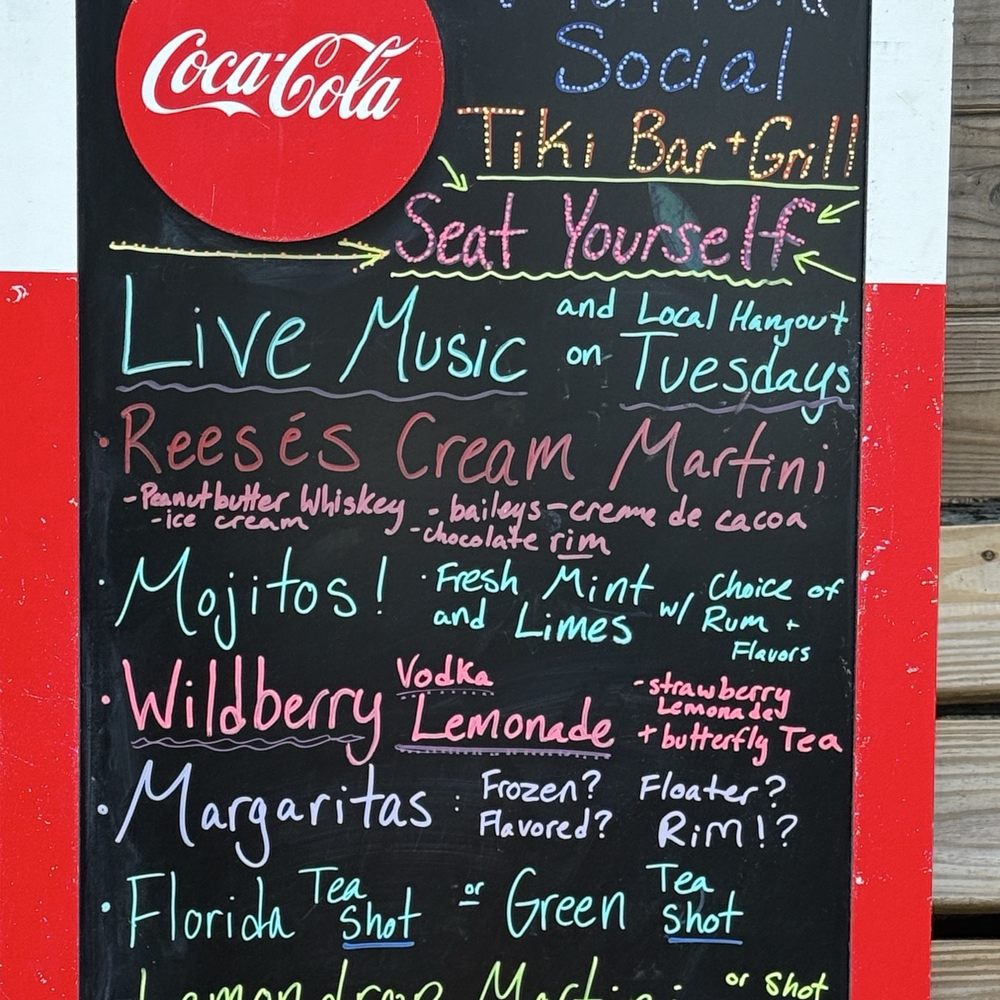 Coca-Cola
Social
Tiki Bar + Grill
Seat Yourself
Live Music and Local Hangout
on Tuesdays
• Reesés Cream Martini
- Peanutbutter Whiskey - baileys - creme de cacoa
- ice cream - chocolate rim
• Mojitos! · Fresh Mint and Limes w/ Choice of Rum + Flavors
• Wildberry Vodka Lemonade
- strawberry
Lemonade
+ butterfly Tea
• Margaritas : Frozen? Floater?
Flavored? Rim!?
• Florida Tea Shot or Green Tea Shot
Lemondrop Martini or shot